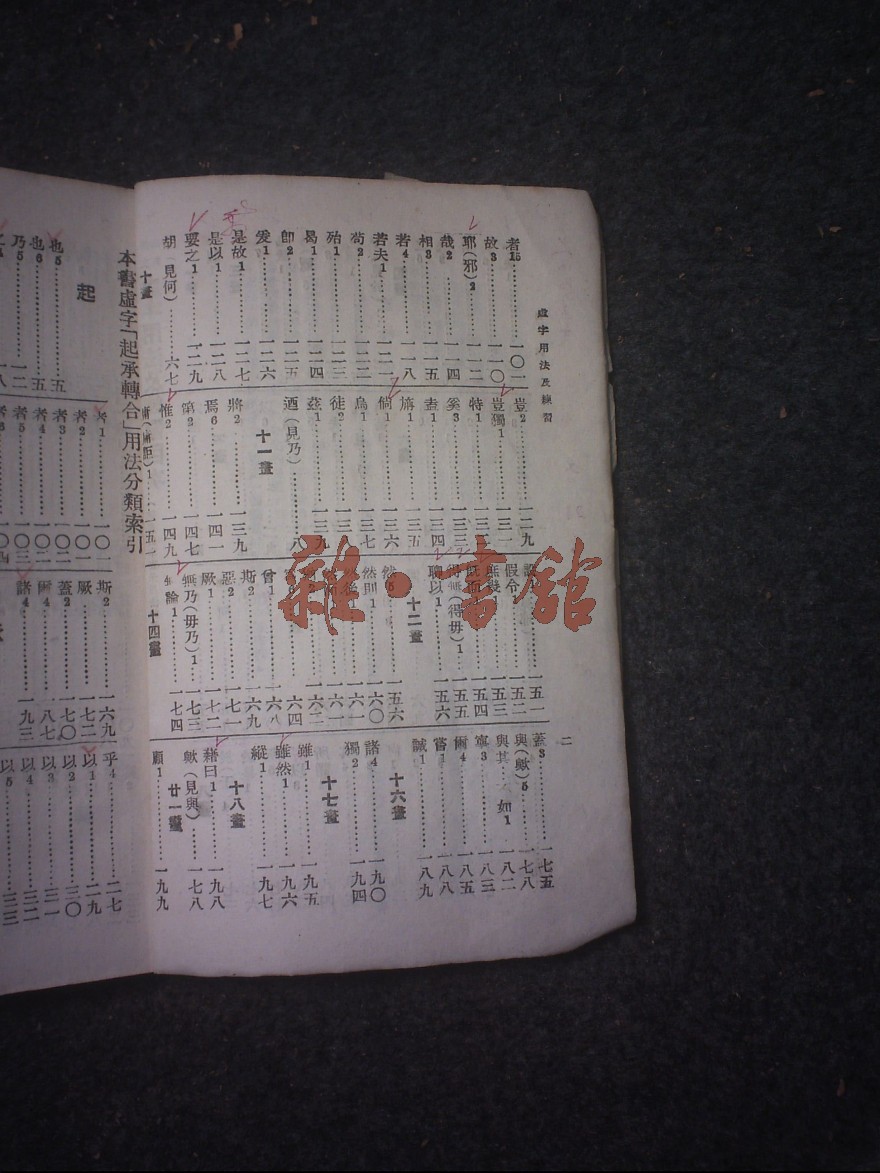 虛字用法及練習
二
者15………一〇一
故3………一一〇
耶(邪)2………一一二
哉2………一一四
相3………一一五
若4………一一八
若夫1………一二一
苟2………一二二
殆1………一二三
曷1………一二四
即2………一二五
爰1………一二六
是故1………一二七
是以1………一二八
要之1………一二九
胡(見何)………六七
十畫
豈2………一二九
豈獨1………一三一
特1………一三二
奚3………一三三
盍1………一三四
旃1………一三五
倘1………一三六
烏1………一三七
徒2………
茲1………一三九
迺(見乃)………八
十一畫
將2………一三九
焉6………一四一
第2………一四七
惟2………一四九
1………一五一
一五一
假令………一五二
庶幾………一五三
既而………一五四
得無(得毋)1………一五五
聊以1………一五六
十二畫
然………一五六
然則1………一六〇
一六一
一六一
一六二
一六四
曾1………一六八
斯2………一六九
惡2………一七一
厥1………一七二
無乃(毋乃)1………一七三
論1………一七四
十四畫
蓋3………一七五
與(歟)5………一七八
與其 如1………一八二
寧3………一八三
爾4………一八五
嘗1………一八八
誠1………一八九
十六畫
諸4………一九〇
獨2………一九四
十七畫
雖1………一九五
雖然1………一九六
縱1………一九七
十八畫
藉曰1………一九八
歟(見與)………一七八
廿一畫
顧1………一九九
本書虛字「起承轉合」用法分類索引
起
也5………五
也6………五
乃5………一二
一八
者1………一〇一
者2………一〇一
者3………一〇二
者4………一〇二
者5………一〇三
斯2………一六九
厥………一七二
蓋2………一七〇
爾4………一八七
諸4………一九三
乎4………二七
以1………二九
以2………三〇
以3………三一
以4………三二
以5………三三
雜·書館